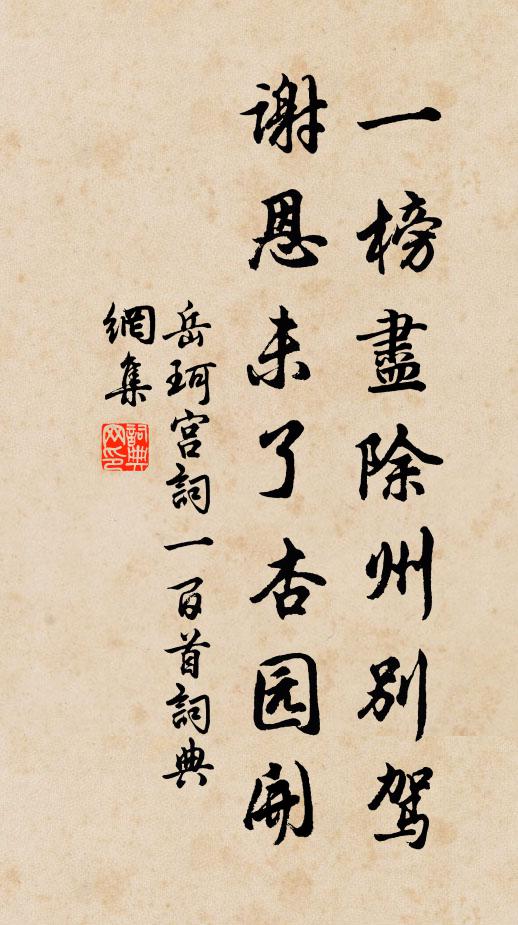 一榜盡除州別駕
謝恩未了杏园開
岳珂宮詞一百首詞典
網集
詞典
网印